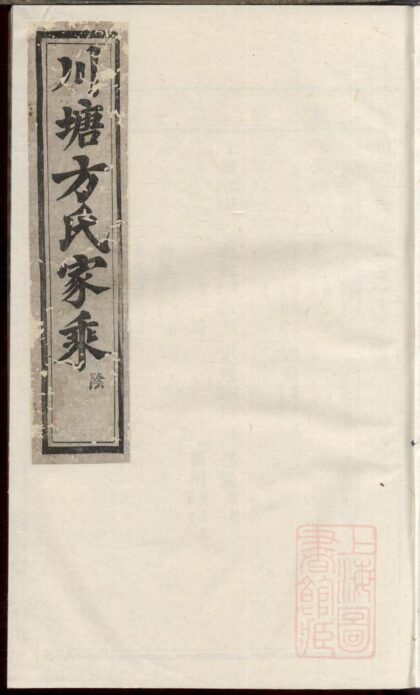 川塘方氏家乘
陰
上海圖
書館藏